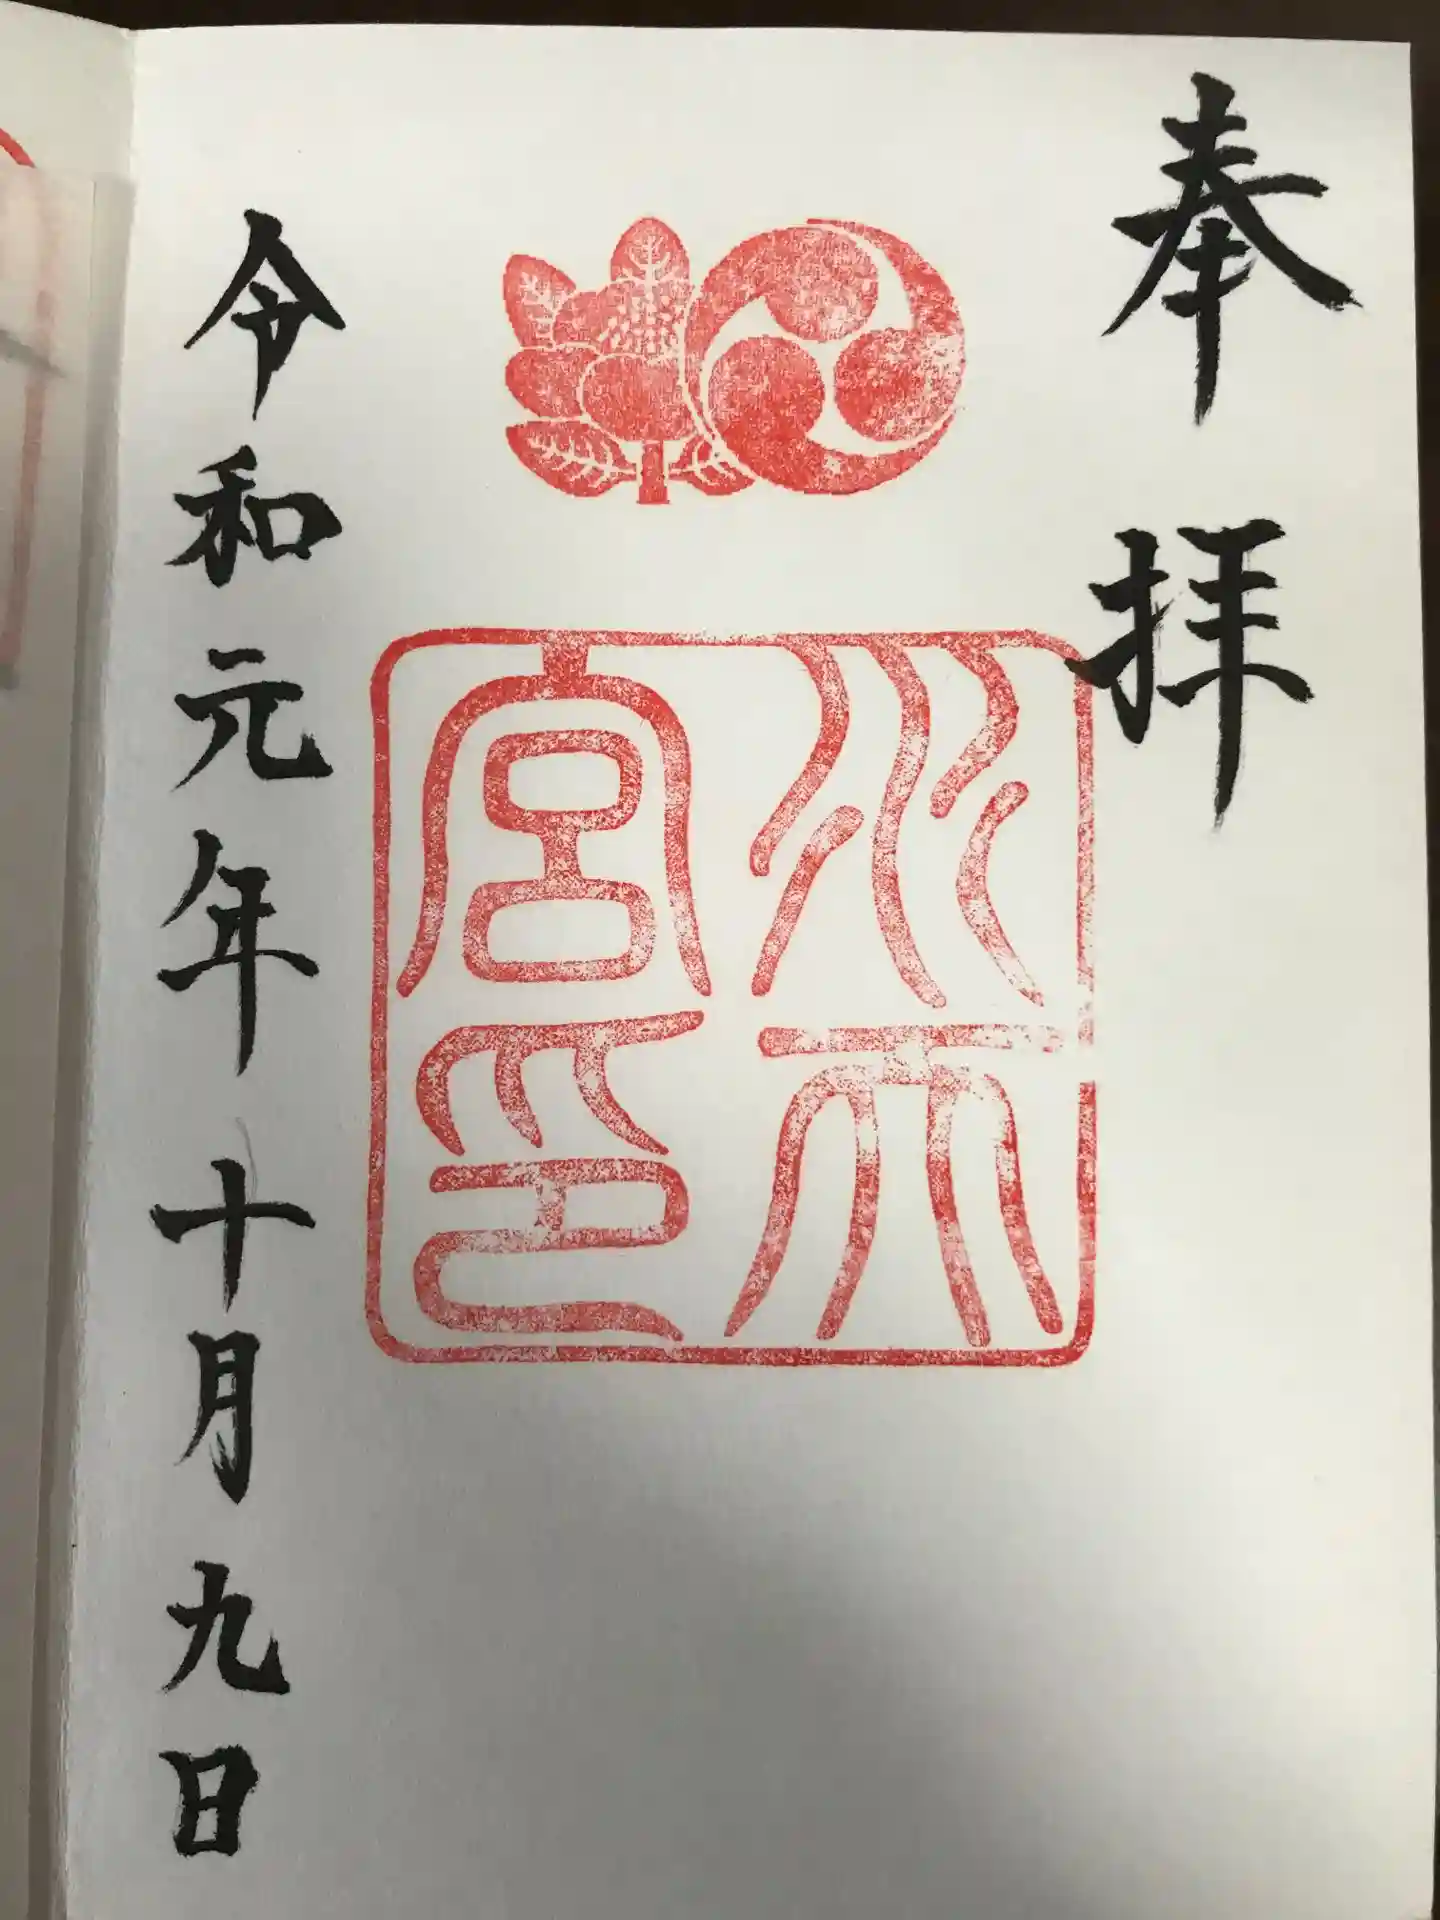 奉拝
水天
宮印
令和元年十月九日